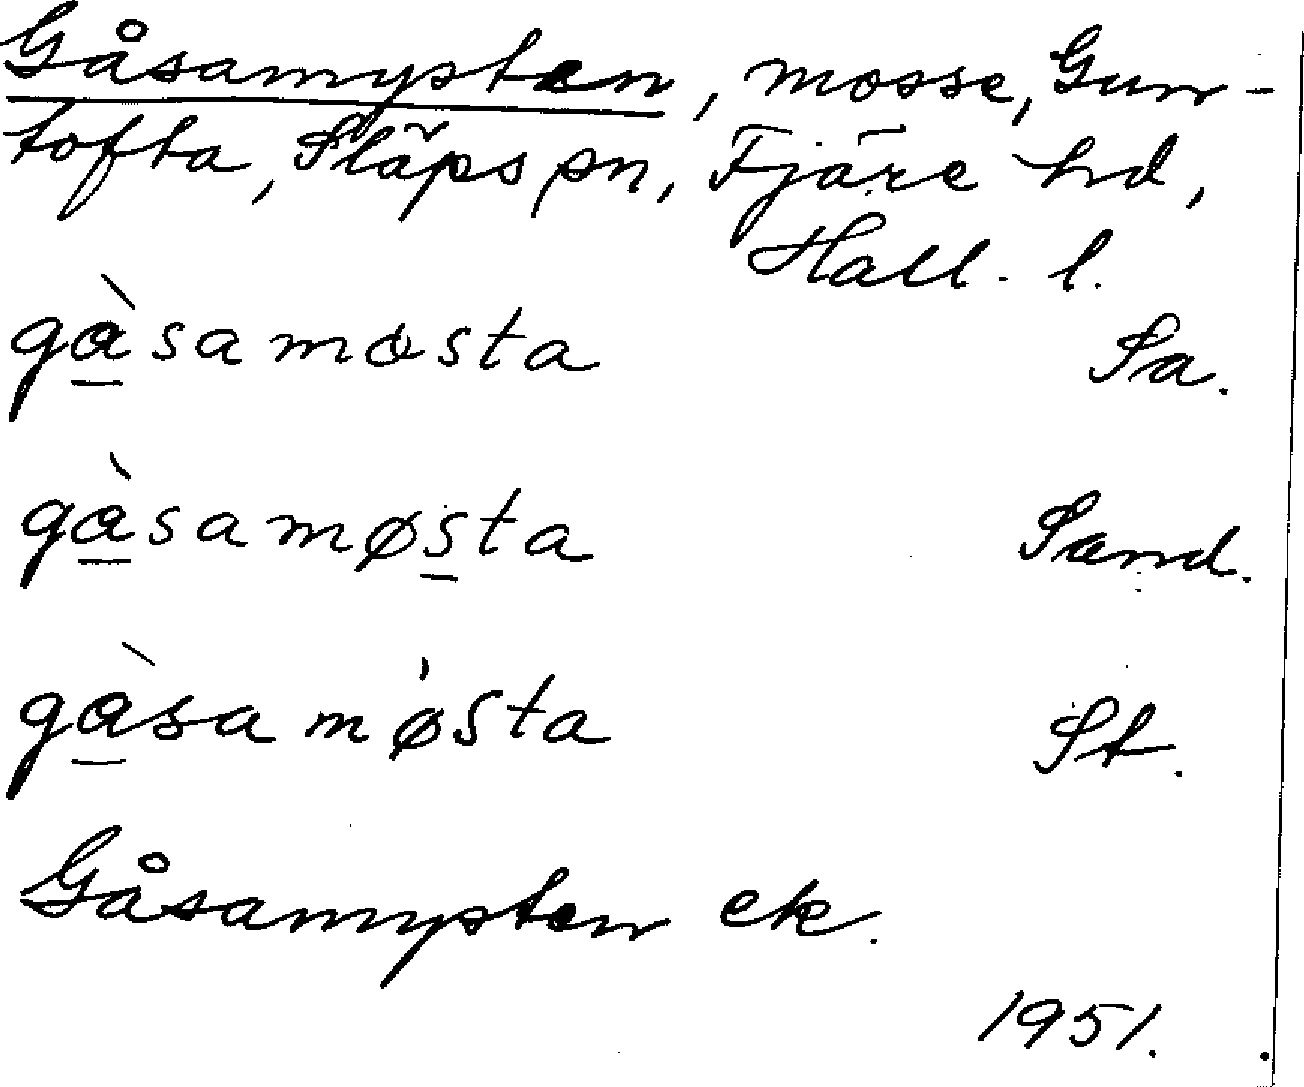 Gåsamysten, mosse, Gun-
tofta, Släps sn, Fjäre hd,
Hall. l.
gàsamosta Sa.
gàsamøsta Sand.
gàsamøsta St.
Gåsamysten ek.
1951.